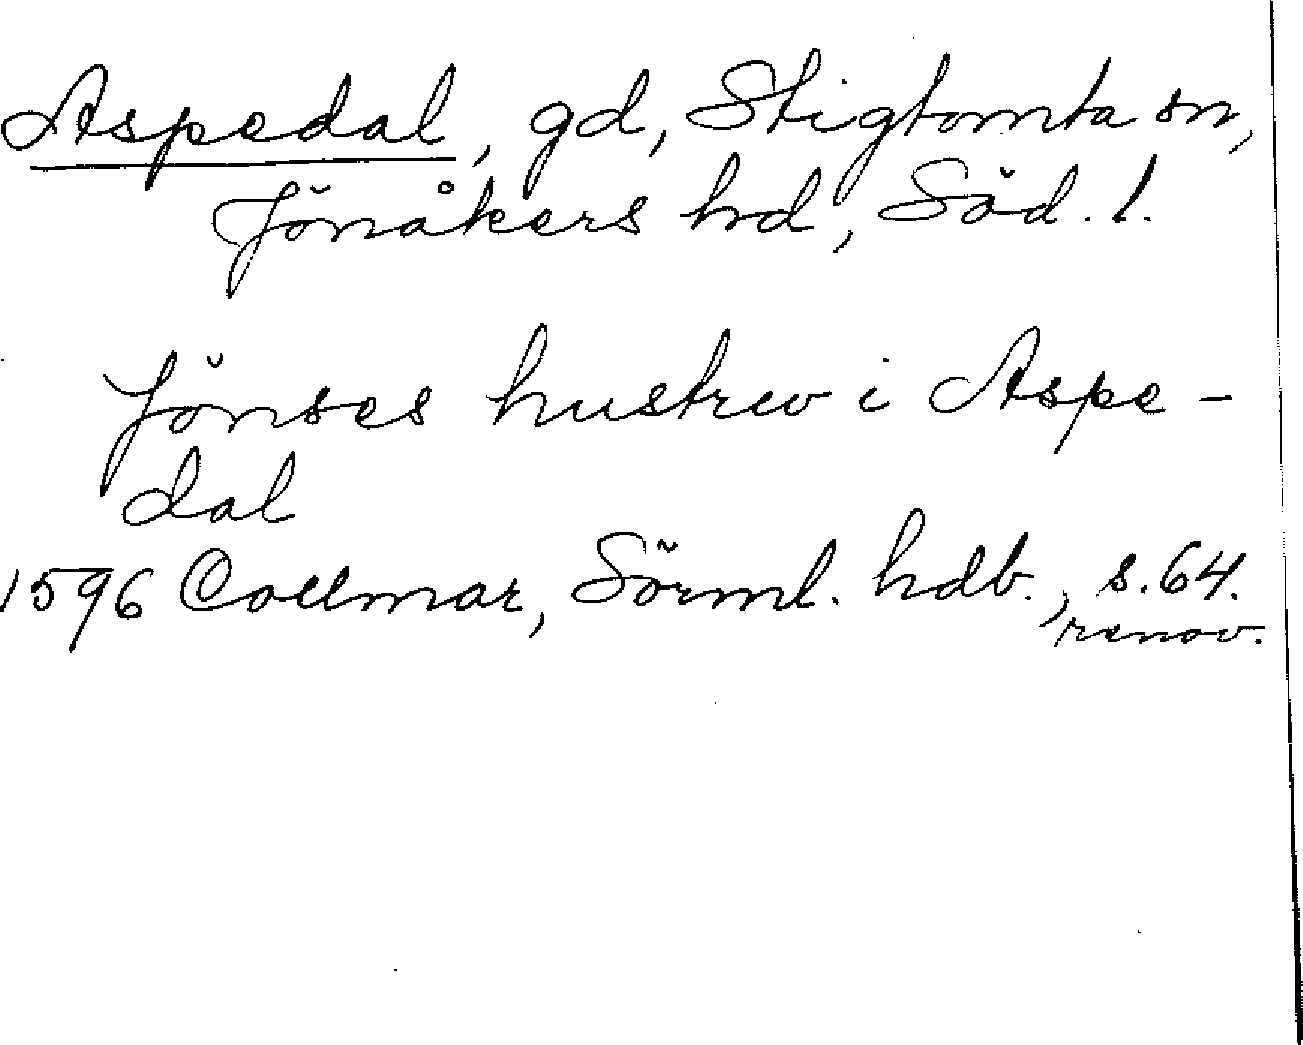 Aspedal, gd, Stigtomta sn,
Jönåkers hd, Söd. l.
Jönses hustrew i Aspe-
dal
1596 Collmar, Sörml. hdb., s. 64.
renov.